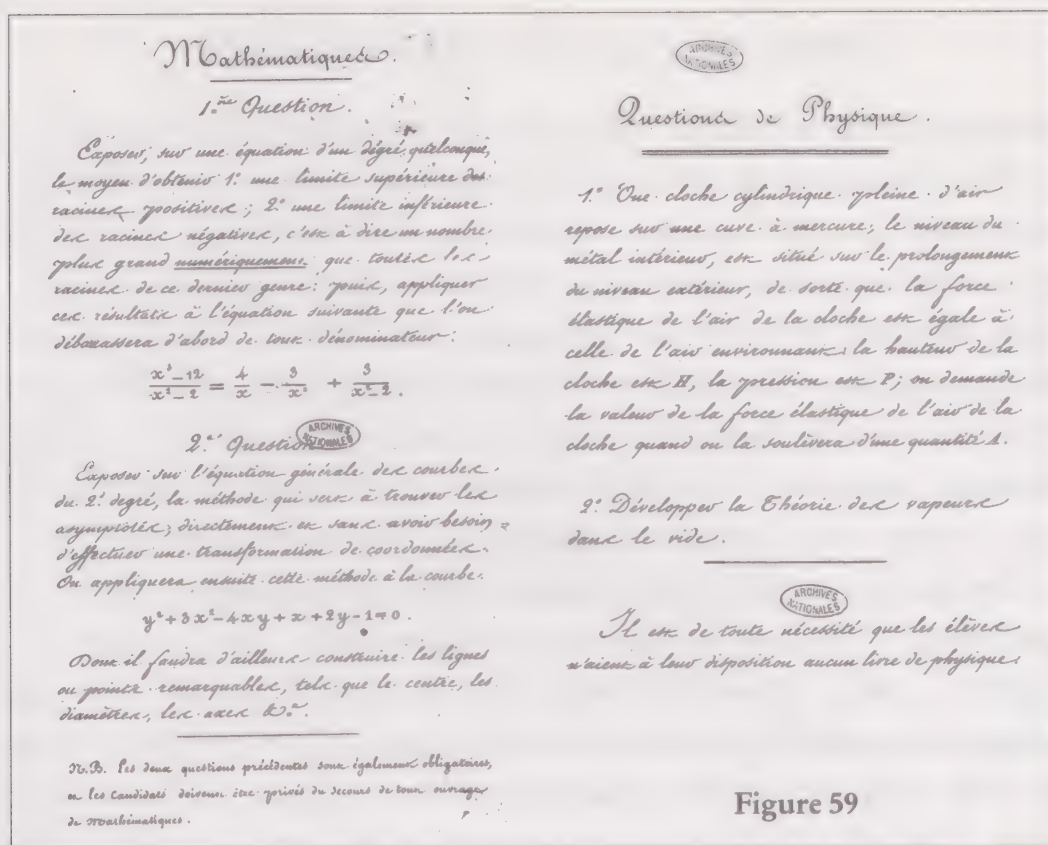 Mathématiques.
1ère Question.
Exposer, sur une équation d'un dégré quelconque,
le moyen d'obtenir 1° une limite supérieure des
racines positives; 2° une limite inférieure
des racines négatives, c'est à dire un nombre
plus grand numériquement que toutes les
racines de ce dernier genre: puis, appliquer
ces résultats à l'équation suivante que l'on
débarassera d'abord de tout dénominateur:
x³-12/x²-2 = 4/x - 3/x² + 3/x²-2.
ARCHIVES NATIONALES
2e Question
Exposer sur l'équation générale des courbes
du 2e degré, la méthode qui sert à trouver les
asymptotes, directement et sans avoir besoin
d'effectuer une transformation de coordonnées.
On appliquera ensuite cette méthode à la courbe.
y²+3x²-4xy+x+2y-1=0.
Dont il faudra d'ailleurs construire les lignes
ou points remarquables, tels que le centre, les
diamètres, les axes &a.
N.B. Les deux questions précédentes sont également obligatoires,
et les Candidats doivent être privés du secours de tout ouvrage
de Mathématiques.
ARCHIVES NATIONALES
Questions de Physique.
1° Une cloche cylindrique pleine d'air
repose sur une cuve à mercure; le niveau du
métal intérieur, est situé sur le prolongement
du niveau extérieur, de sorte que la force
élastique de l'air de la cloche est égale à
celle de l'air environnant: la hauteur de la
cloche est H, la pression est P; on demande
la valeur de la force élastique de l'air de la
cloche quand on la soulèvera d'une quantité A.
2° Développer la Théorie des vapeurs
dans le vide.
ARCHIVES NATIONALES
Il est de toute nécessité que les élèves
n'aient à leur disposition aucun livre de physique.
Figure 59